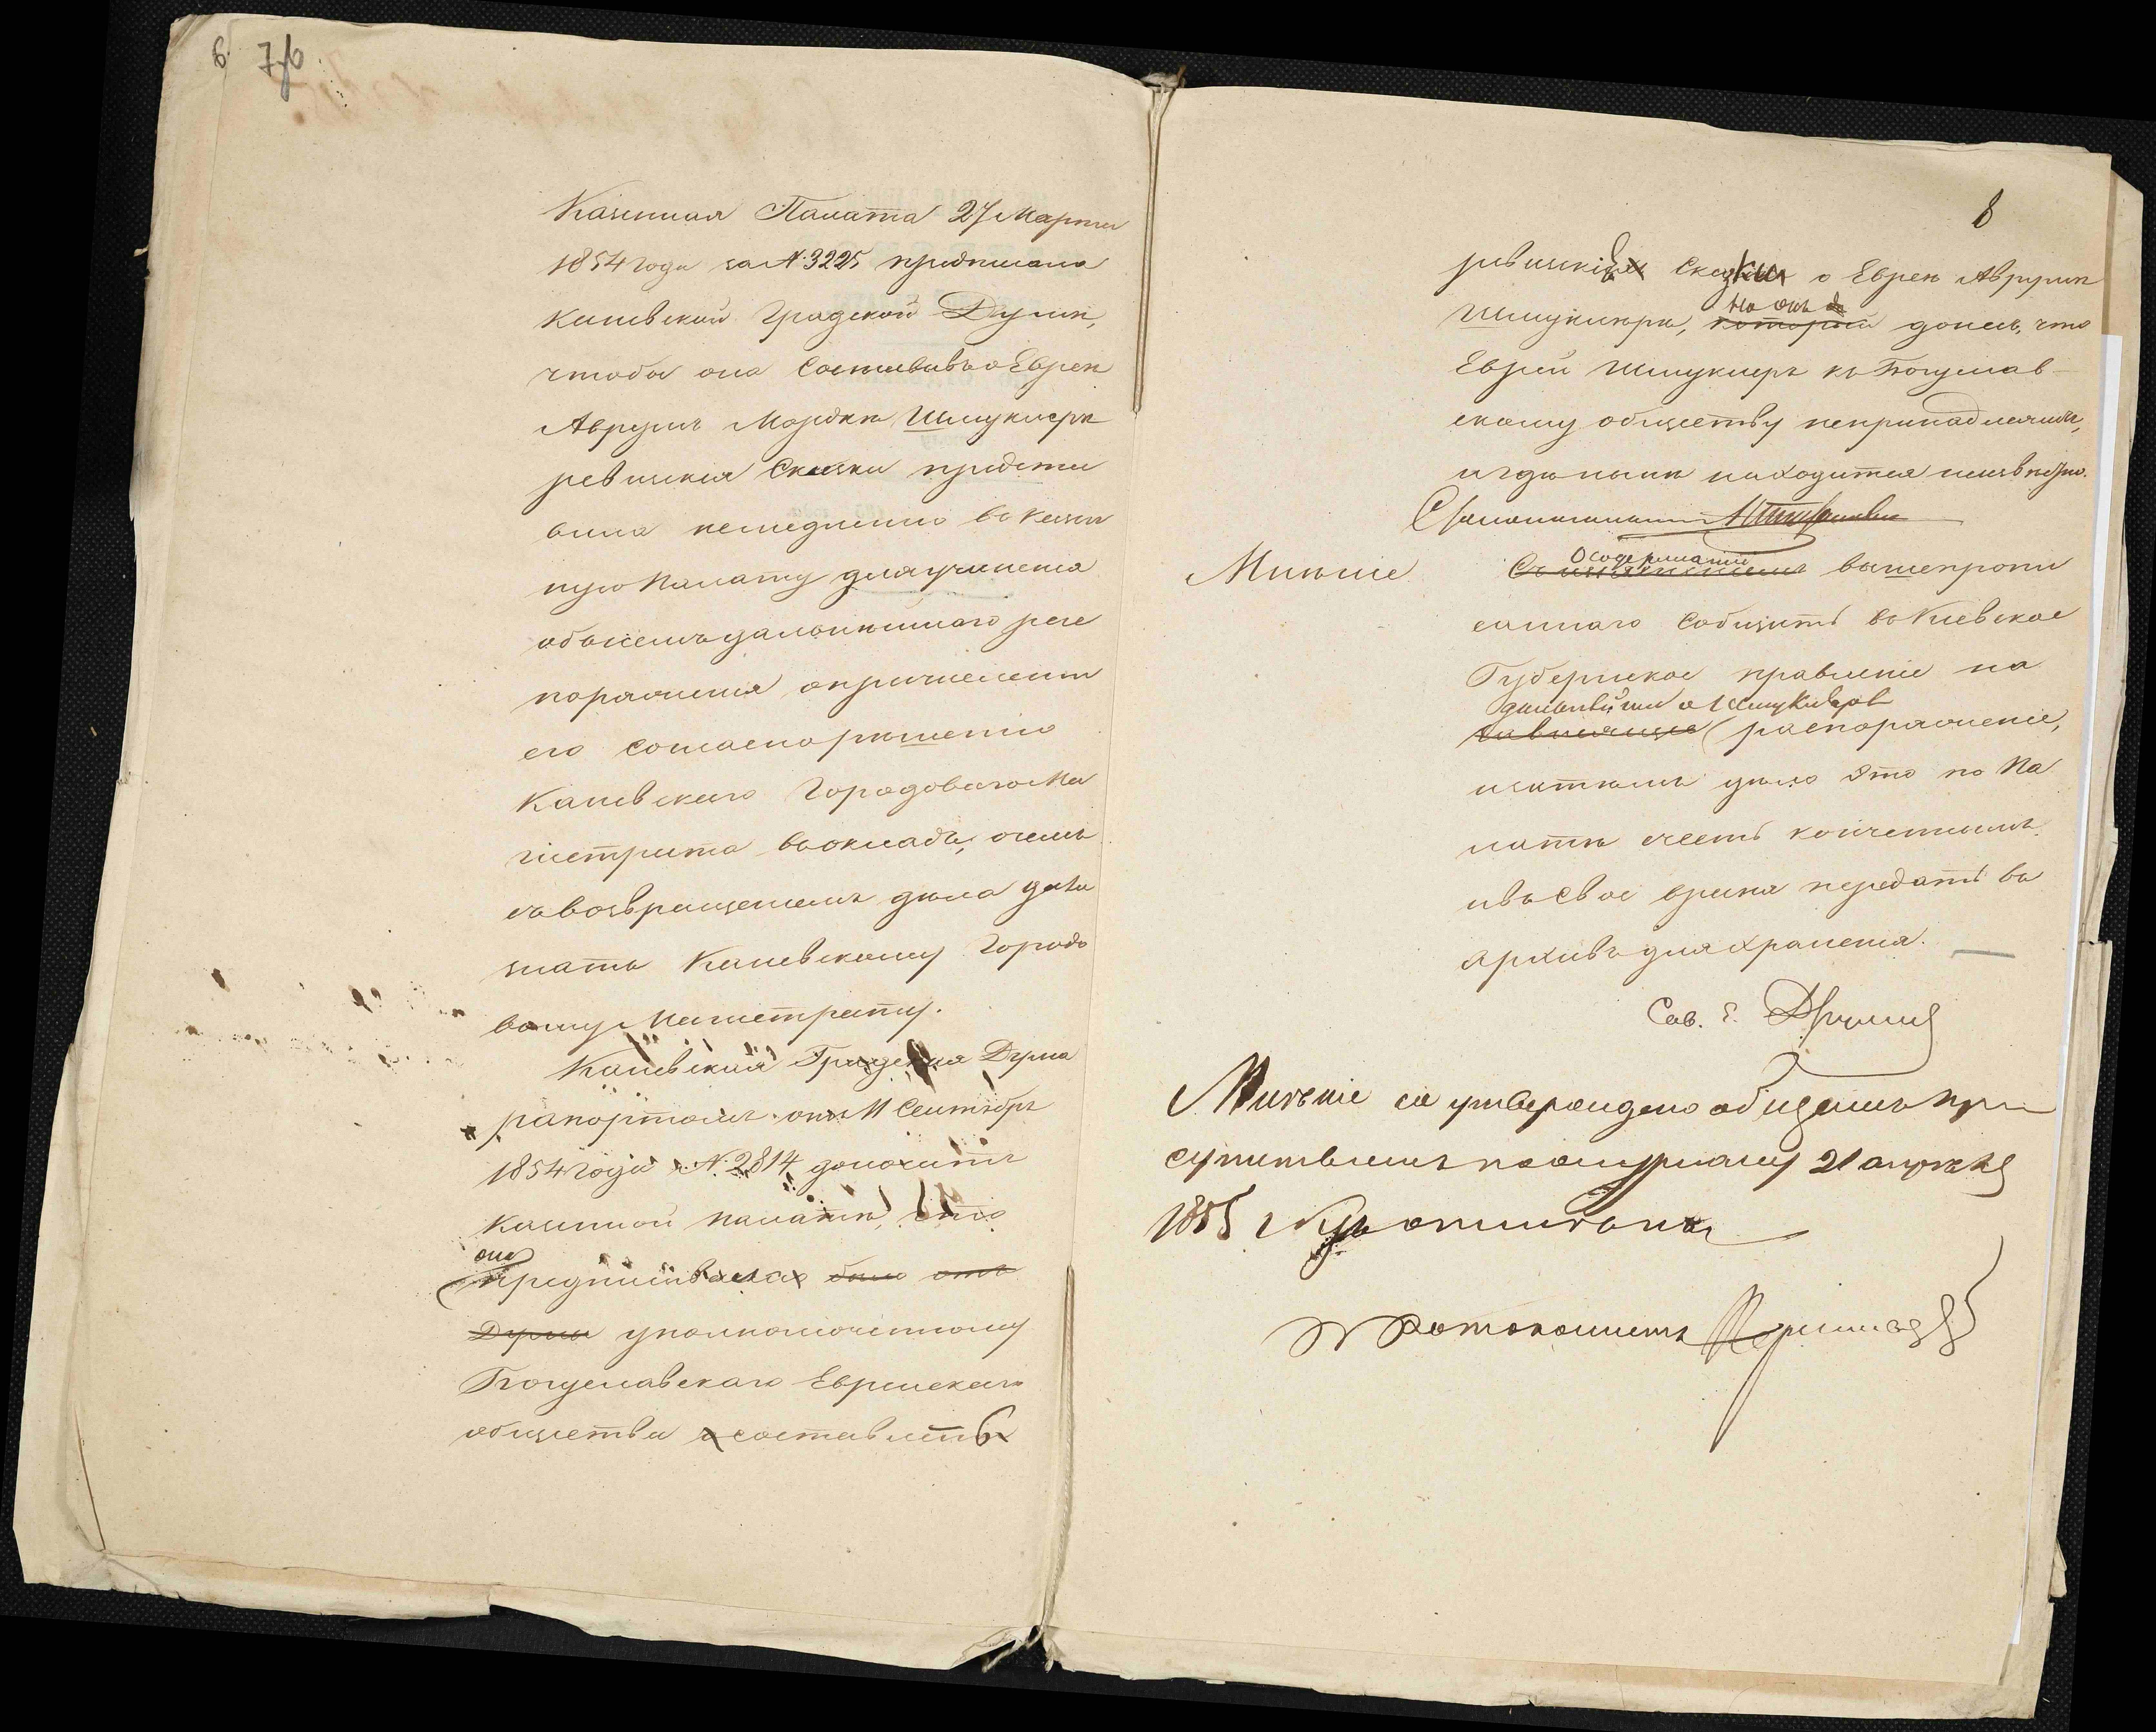 Казенная Палата 27 Марта
1854 года за №. 3225 предписала
Каневской Градской Думѣ,
чтобы она составивъ о Евреѣ
Аврумъ Мордкѣ Шмуклерѣ
ревизскія Сказки предста
вила немедленно въ Казен
ную Палату для учиненія
объ немъ дальнѣйшаго рас
поряженія о причисленіи
его согласно рѣшенію
Каневскаго Городоваго Ма
гистрата въ окладъ, о чемъ
съ возвращеніемъ дѣла дать
знать Каневскому Городо
вому Магистрату.
Каневская Градская Дума
рапортомъ отъ 11 Сентября
1854 года №. 2814 доноситъ
Казенной палатѣ, что
она
предписывала было отъ
Думы уполномоченному
Богуславскаго Еврейскаго
общества составить
8
ревизскія Сказки о Евреѣ Аврумѣ
но онъ
Шмуклерѣ, который донесъ, что
Еврей Шмуклеръ къ Богуслав
скому обществу непринадлежитъ,
и гдѣ нынѣ находится неизвѣстно.
Столоначальникъ
О содержаніи
Мнѣніе вышепропи
саннаго сообщить въ Кіевское
Губернское правленіе на
дальнѣйшее о Шмуклерѣ
зависящее распоряженіе,
и затѣмъ дѣло это по Па
латѣ счесть конченнымъ
и въ свое время передать въ
архивъ для храненія.
Сов.
Мнѣніе сіе утверждено общимъ при
сутствіемъ по журналу 21 апрѣля
1855
Протоколистъ